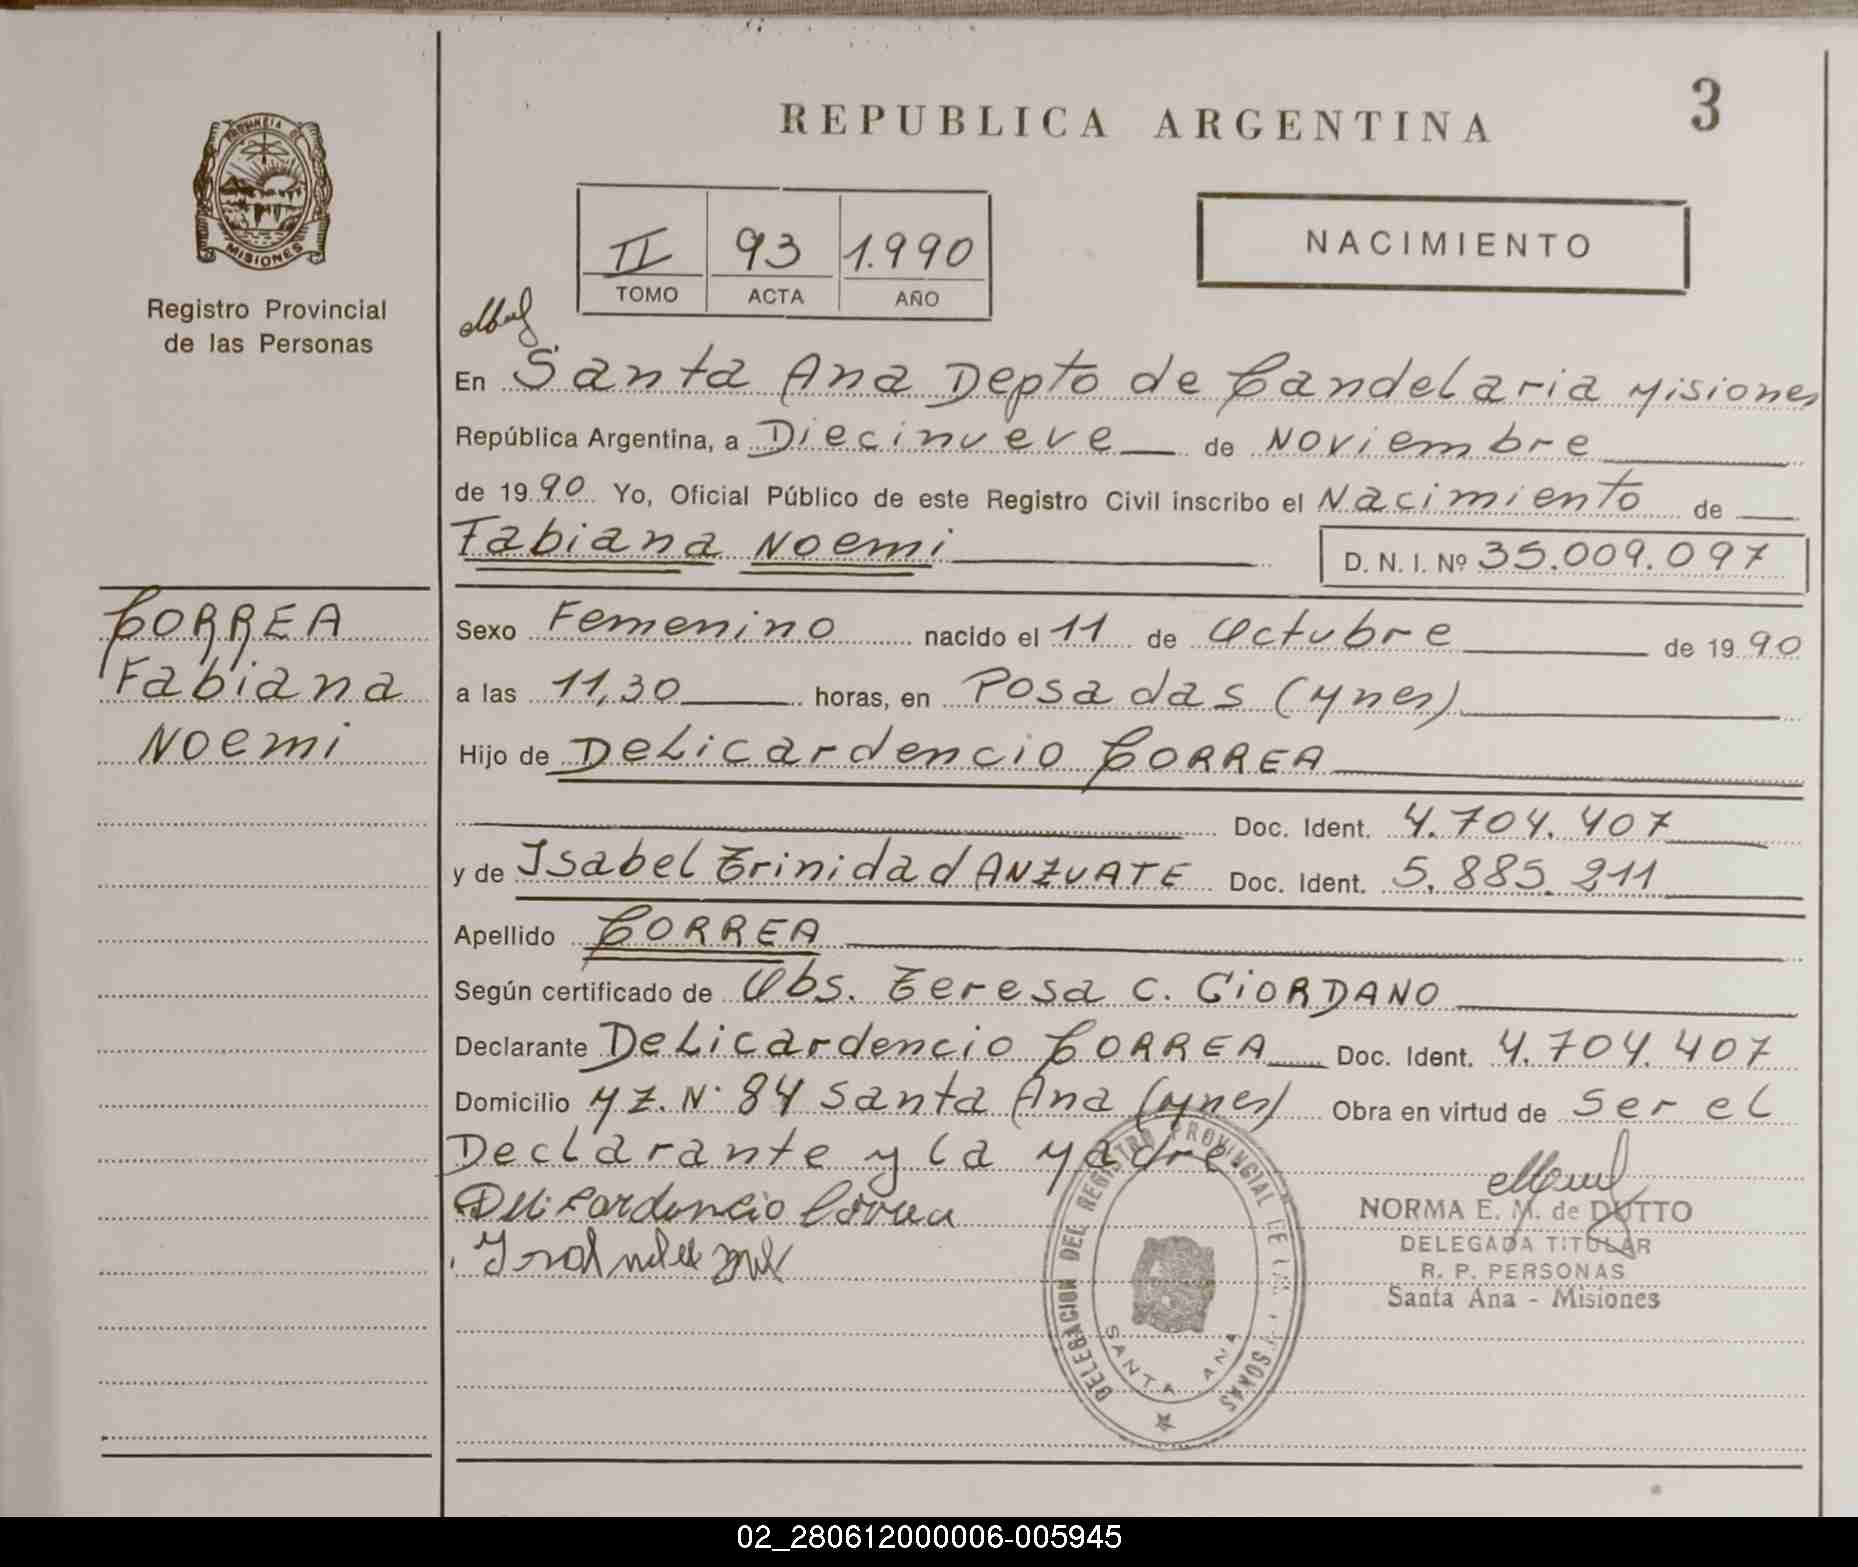 3
REPUBLICA ARGENTINA
PROVINCIA DE
MISIONES
Registro Provincial
de las Personas
II 93 1.990
TOMO ACTA AÑO
NACIMIENTO
En Santa Ana Depto de Candelaria Misiones
República Argentina, a Diecinueve de Noviembre
de 1990 Yo, Oficial Público de este Registro Civil inscribo el Nacimiento de
Fabiana Noemi D. N. I. Nº 35.009.097
CORREA
Fabiana
Noemi
Sexo Femenino nacido el 11 de Octubre de 1990
a las 11,30 horas, en Posadas (Mnes)
Hijo de Delicardencio CORREA
Doc. Ident. 4.704.407
y de Isabel Trinidad ANZUATE Doc. Ident. 5.885.211
Apellido CORREA
Según certificado de Obs. Teresa C. GiORDANO
Declarante Delicardencio CORREA Doc. Ident. 4.704.407
Domicilio MZ. Nº 84 Santa Ana (Mnes) Obra en virtud de Ser el
Declarante y la Madre.
Delicardencio Correa
NORMA E. M. de DUTTO
DELEGADA TITULAR
R. P. PERSONAS
Santa Ana - Misiones
DELEGACION DEL REGISTRO PROVINCIAL DE
SANTA ANA
02_280612000006-005945